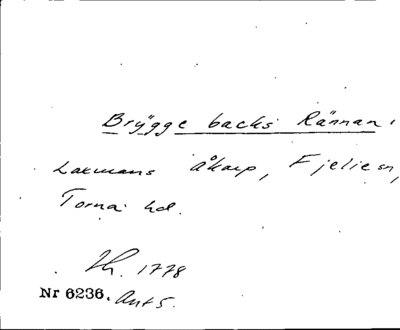 Brygge backs Rännan.
Laxmans Åkarp, Fjelie sn,
Torna hd.
Lh. 1778
Nr 6236. Ant 5.